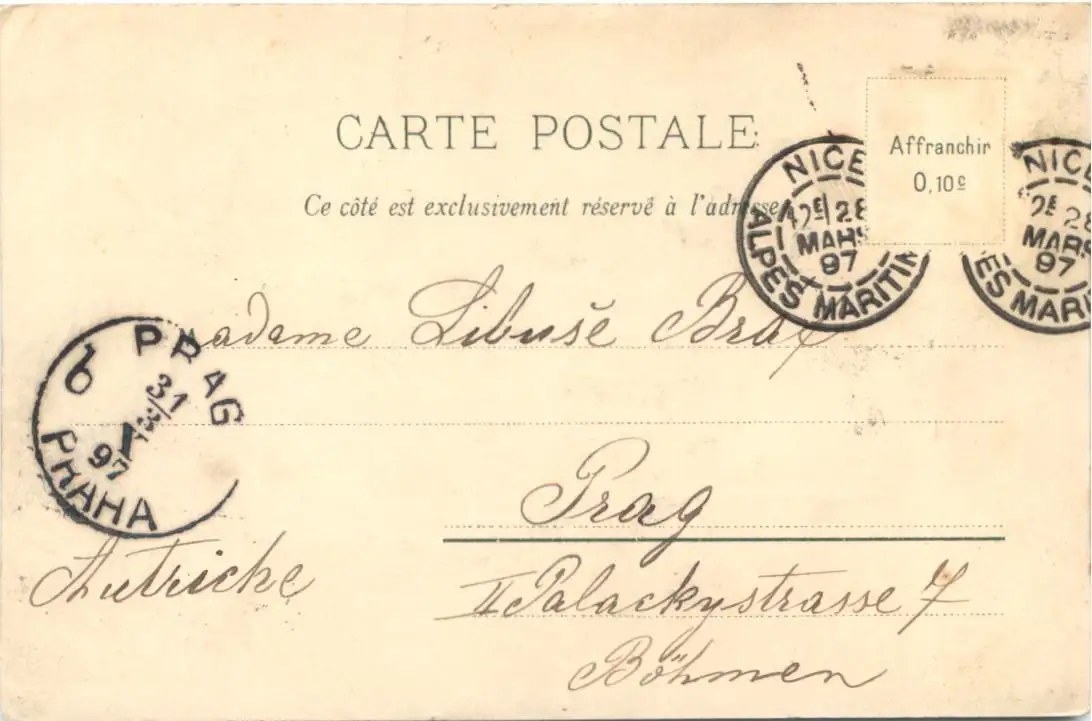 CARTE POSTALE
Affranchir
0,10c
Ce côté est exclusivement réservé à l'adresse
NICE
12E 28
MARS
97
ALPES MARITIM
NICE
2E 28
MARS
97
ES MARI
Madame Libuše Braf
PRAG
6
31
3
97
PRAHA
Prag
Autriche
II Palackystrasse 7
Böhmen